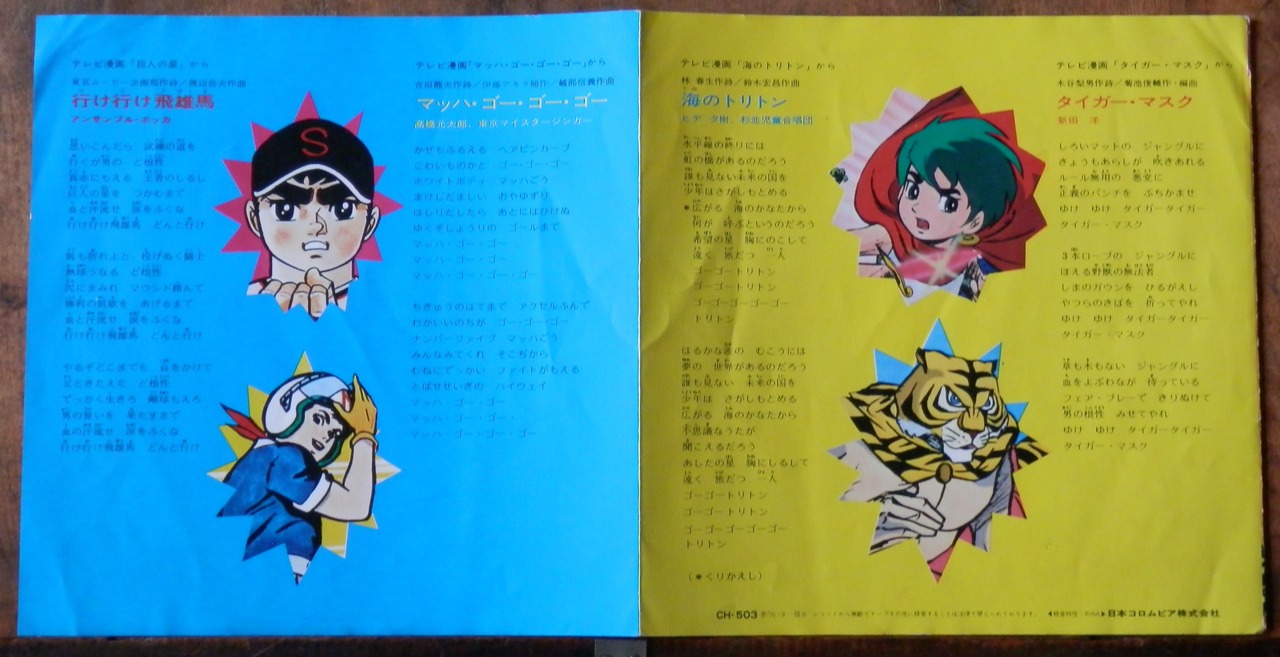 テレビ漫画「巨人の星」から
東京ムービー企画部作詩／渡辺岳夫作曲
行け行け飛雄馬
アンサンブル・ボッカ
思いこんだら　試練の道を
行くが男の　ど根性
真赤にもえる　王者のしるし
巨人の星を　つかむまで
血と汗流せ　涙をふくな
行け行け飛雄馬　どんと行け
腕も折れよと　投げぬく闘士
熱球うなる　ど根性
泥にまみれ　マウンド踏んで
勝利の凱歌を　あげるまで
血と汗流せ　涙をふくな
行け行け飛雄馬　どんと行け
やるぞどこまでも　命をかけて
父ときたえた　ど根性
でっかく生きろ　剛球もえろ
男の誓いを　果たすまで
血の汗流せ　涙をふくな
行け行け飛雄馬　どんと行け
テレビ漫画「マッハ・ゴー・ゴー・ゴー」から
吉田竜夫作詩／伊藤アキラ補作／越部信義作曲
マッハ・ゴー・ゴー・ゴー
高橋元太郎、東京マイスタージンガー
かぜもふるえる　ヘアピンカーブ
こわいものかと　ゴー・ゴー・ゴー
ホワイトボディ　マッハごう
まけじだましい　おやゆずり
はしりだしたら　あとにはひけぬ
ゆくぞしょうりの　ゴールまで
マッハ・ゴー・ゴー
マッハ・ゴー・ゴー
マッハ・ゴー・ゴー・ゴー
ちきゅうのはてまで　アクセルふんで
わかいいのちが　ゴー・ゴー・ゴー
ナンバーファイブ　マッハごう
みんなみてくれ　そこぢから
むねにでっかい　ファイトがもえる
とばせせいぎの　ハイウェイ
マッハ・ゴー・ゴー
マッハ・ゴー・ゴー
マッハ・ゴー・ゴー・ゴー
テレビ漫画「海のトリトン」から
林 春生作詩／鈴木宏昌作曲
海のトリトン
ヒデ 夕樹、杉並児童合唱団
水平線の終りには
虹の橋があるのだろう
誰も見ない未来の国を
少年はさがしもとめる
＊広がる　海のかなたから
何が　呼ぶというのだろう
希望の星　胸にのこして
遠く　旅だつ　一人
ゴーゴートリトン
ゴーゴートリトン
ゴーゴーゴーゴーゴー
トリトン
はるかな波の　むこうには
夢の　世界があるのだろう
誰も見ない　未来の国を
少年は　さがしもとめる
広がる　海のかなたから
不思議なうたが
聞こえるだろう
あしたの星　胸にしるして
遠く　旅だつ　一人
ゴーゴートリトン
ゴーゴートリトン
ゴーゴーゴーゴーゴー
トリトン
（＊くりかえし）
テレビ漫画「タイガー・マスク」から
木谷梨男作詩／菊池俊輔作・編曲
タイガー・マスク
新田　洋
しろいマットの　ジャングルに
きょうもあらしが　吹きあれる
ルール無用の　悪党に
正義のパンチを　ぶちかませ
ゆけ　ゆけ　タイガータイガー
タイガー・マスク
3本ロープの　ジャングルに
ほえる野獣の無法者
しまのガウンを　ひるがえし
やつらのきばを　折ってやれ
ゆけ　ゆけ　タイガータイガー
タイガー・マスク
草も木もない　ジャングルに
血をよぶわなが　待っている
フェア・プレーで　きりぬけて
男の根性　みせてやれ
ゆけ　ゆけ　タイガータイガー
タイガー・マスク
CH-503
日本コロムビア株式会社
S